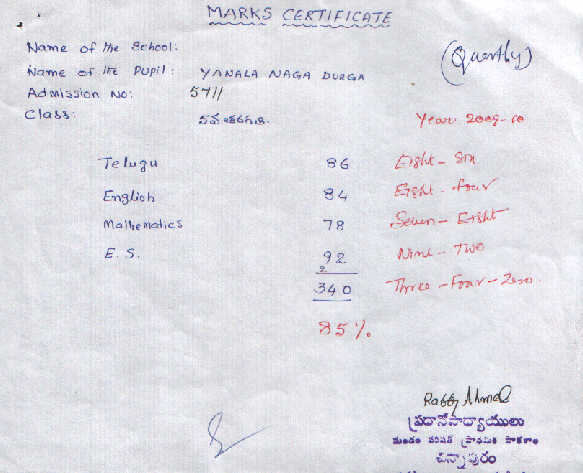 MARKS CERTIFICATE
Name of the School:
(Quartly)
Name of the Pupil: YANALA NAGA DURGA
Admission No: 5711
Class: 5వ తరగతి. Year 2009-10
Telugu 86 Eight - Six
English 84 Eight - four
Mathematics 78 Seven - Eight
E. S. 92 Nine - Two
2
340 Three - Four - Zero.
85%
ప్రధానోపాధ్యాయులు
మండల పరిషత్ ప్రాథమిక పాఠశాల
చిన్నాపురం